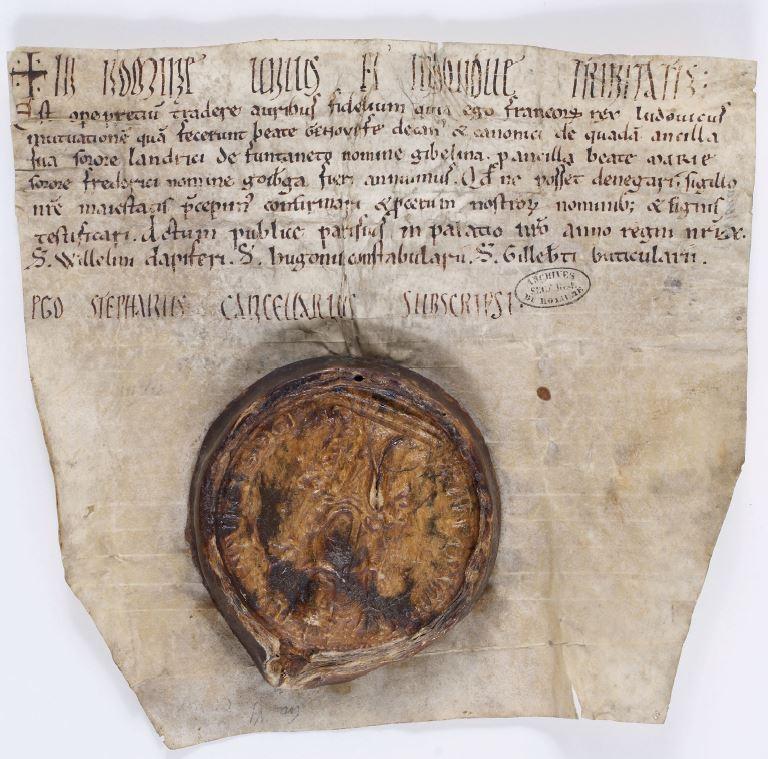 IN NOMINE UNIUS ET INDIVIDUE TRINITATIS:
Est operepretiū tradere auribus fidelium quia ego francorꝫ rex ludovicus
mutuationē quā fecerunt beate GENOVEFE decan' & canonici de quadā ancilla
sua sorore landrici de funtaneto nomine gibelina. p ancilla beate MARIE
sorore frederici nomine fieri annuimus. Qd ne posset denegari. sigillo
nrē maiestatis p̄cepim' confirmari & pcerum nostrorꝫ nominibꝫ & signis
testificari. Actum publice parisius in palatio nrō anno regni nri x.
S. Willelmi dapiferi. S. hugonis constabularii. S. Gilleb̄ti buticularii.
EGO STEPHANUS CANCELLARIUS SUBSCRIPSI.
ARCHIVES
DU ROYAUME